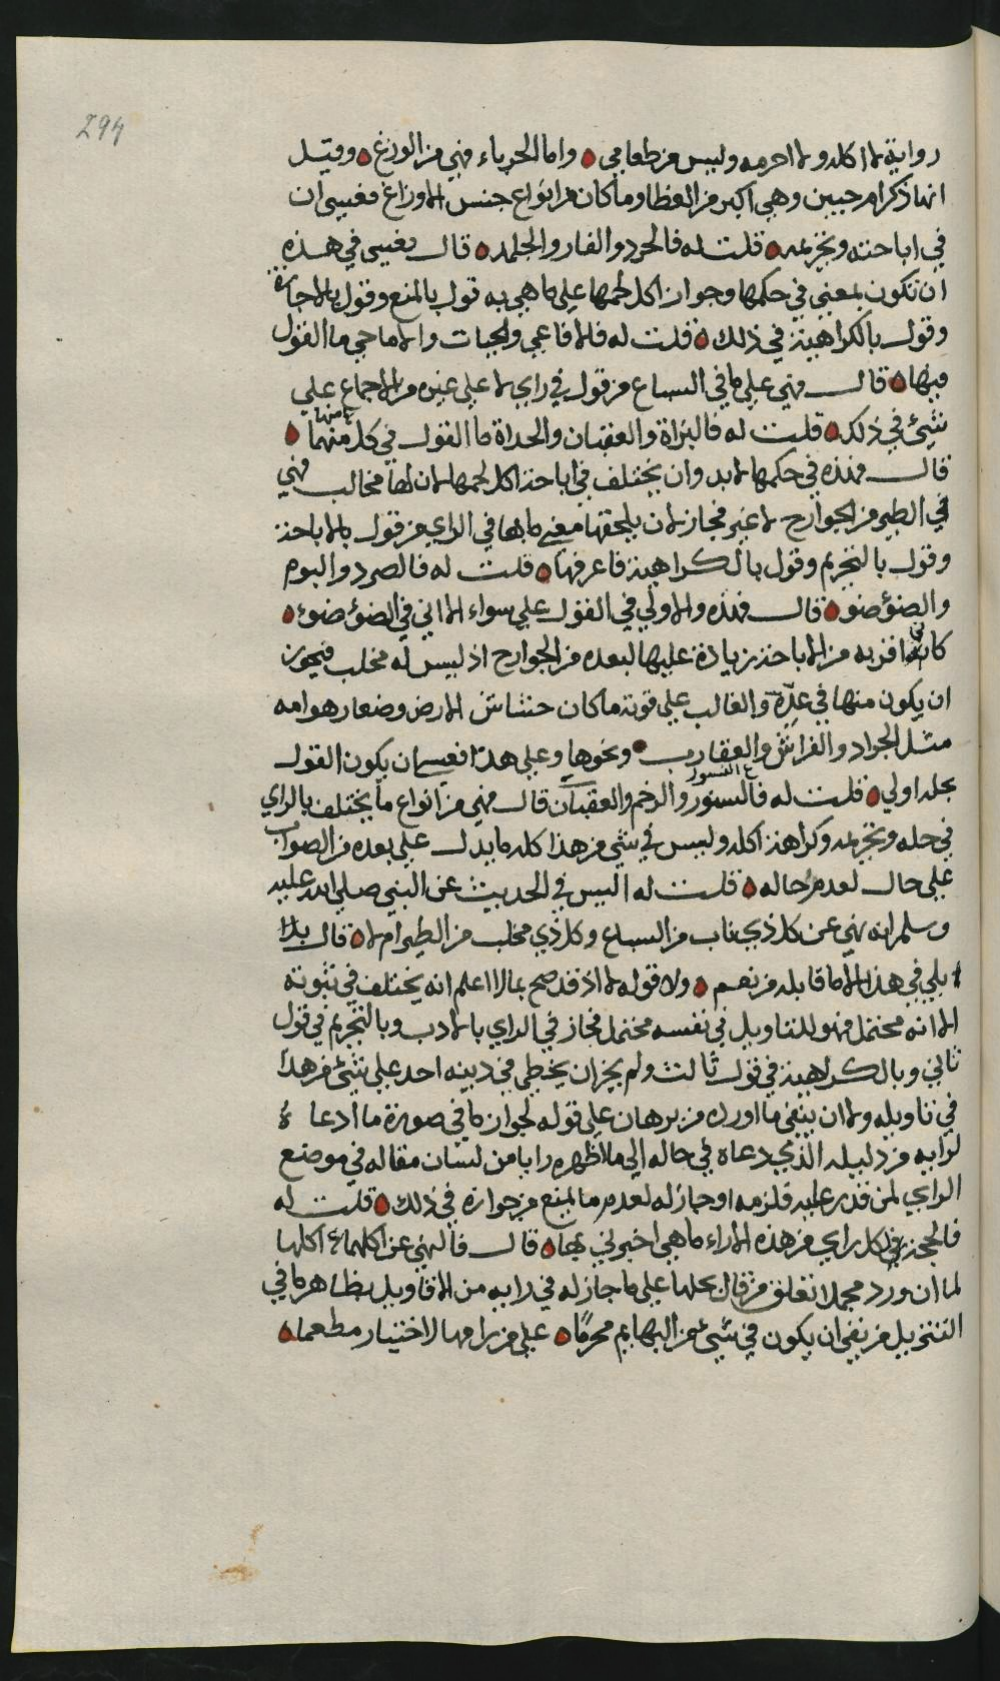 294
رواية لا اكله ولا احرمه وليس من طعامي ه واما الحرباء فهي من الوزغ ه وقيل
انها ذكر ام حبين وهي اكبر من العظا وما كان من انواع جنس الاوزاغ فعسى ان
في اباحته وتحريمه ه قلت له فالجرد والفار والجلمد ه قال فعسى في هذه
ان تكون بمعنى في حكمها وجواز اكل لحمها على ما هي به قول بالمنع وقول بالاجازة
وقول بالكراهية في ذلك ه قلت له فالافاعي والحيات والاماحي ما القول
فيها ه قال فهي على ما في السباع من قول في راي لا على غيره من الاجماع على
شيء في ذلك ه قلت له فالبزاة والعقبان والحداة ما القول في كل منهما ع منها ه
قال فهذه في حكمها لابد وان يختلف في اباحة اكل لحمها لان لها مخالب فهي
في الطير من الجوارح لا غير فجاز لان يلحقها معنى ما بها في الراي من قول بالاباحة
وقول بالتحريم وقول بالكراهية فاعرفها ه قلت له فالصرد والبوم
والضوء ضو ه قال فهذه والاولى في القول على سواء الا اني في الضوء ضوء ه
كانه اقربه من الاباحة زيادة عليها لبعده من الجوارح اذ ليس له مخلب فيجوز
ان يكون منها في عدة والغالب على قوته ما كان حشاش الارض وضعار هوامه
مثل الجراد والفراش والعقارب ه ونحوها وعلى هذا فعسى ان يكون القول
بحله اولى ه قلت له فالسنور ع النسور والرخم والعقبان قال فهي من انواع ما يختلف بالراي
في حله وتحريمه وكراهة اكله وليس في شيء من هذا كله ما يدل على بعده من الصواب
على حال لعدم احاله ه قلت له اليس في الحديث عن النبي صلى الله عليه
وسلم انه نهى عن كل ذي ناب من السباع وكل ذي مخلب من الطير ام لا ه قال بلا
بلى في هذا الا ما قابله من نعم ه ولا قوله لا اذ قد صح بما لا اعلم انه يختلف في ثبوته
الا انه محتمل فهو للتاويل في نفسه محتمل فجاز في الراي بالادب وبالتحريم في قول
ثاني وبالكراهية في قول ثالث ولم يجز ان يخطي في دينه احد على شيء من هذا
في تاويله ولا ان ينفى ما اورده من برهان على قوله لجواز ما في صورة ما ادعاه
لرايه من دليله الذي دعاه في حاله الى ما اظهره رايا من لسان مقاله في موضع
الراي لمن قدر عليه فلزمه او جاز له لعدم ما يمنع من جوازه في ذلك ه قلت له
فالحجة في كل راي من هذه الاراء ما هي اخبرني بها ه قال فالنهي عن اكلهما ع اكلها
لما ان ورد مجملا تعلق من قال بحلها على ما جاز له في رايه من الاقاويل بظاهر ما في
التنزيل من نفي ان يكون في شيء من البهايم محرما ه على من رامها لاختيار مطعما ه